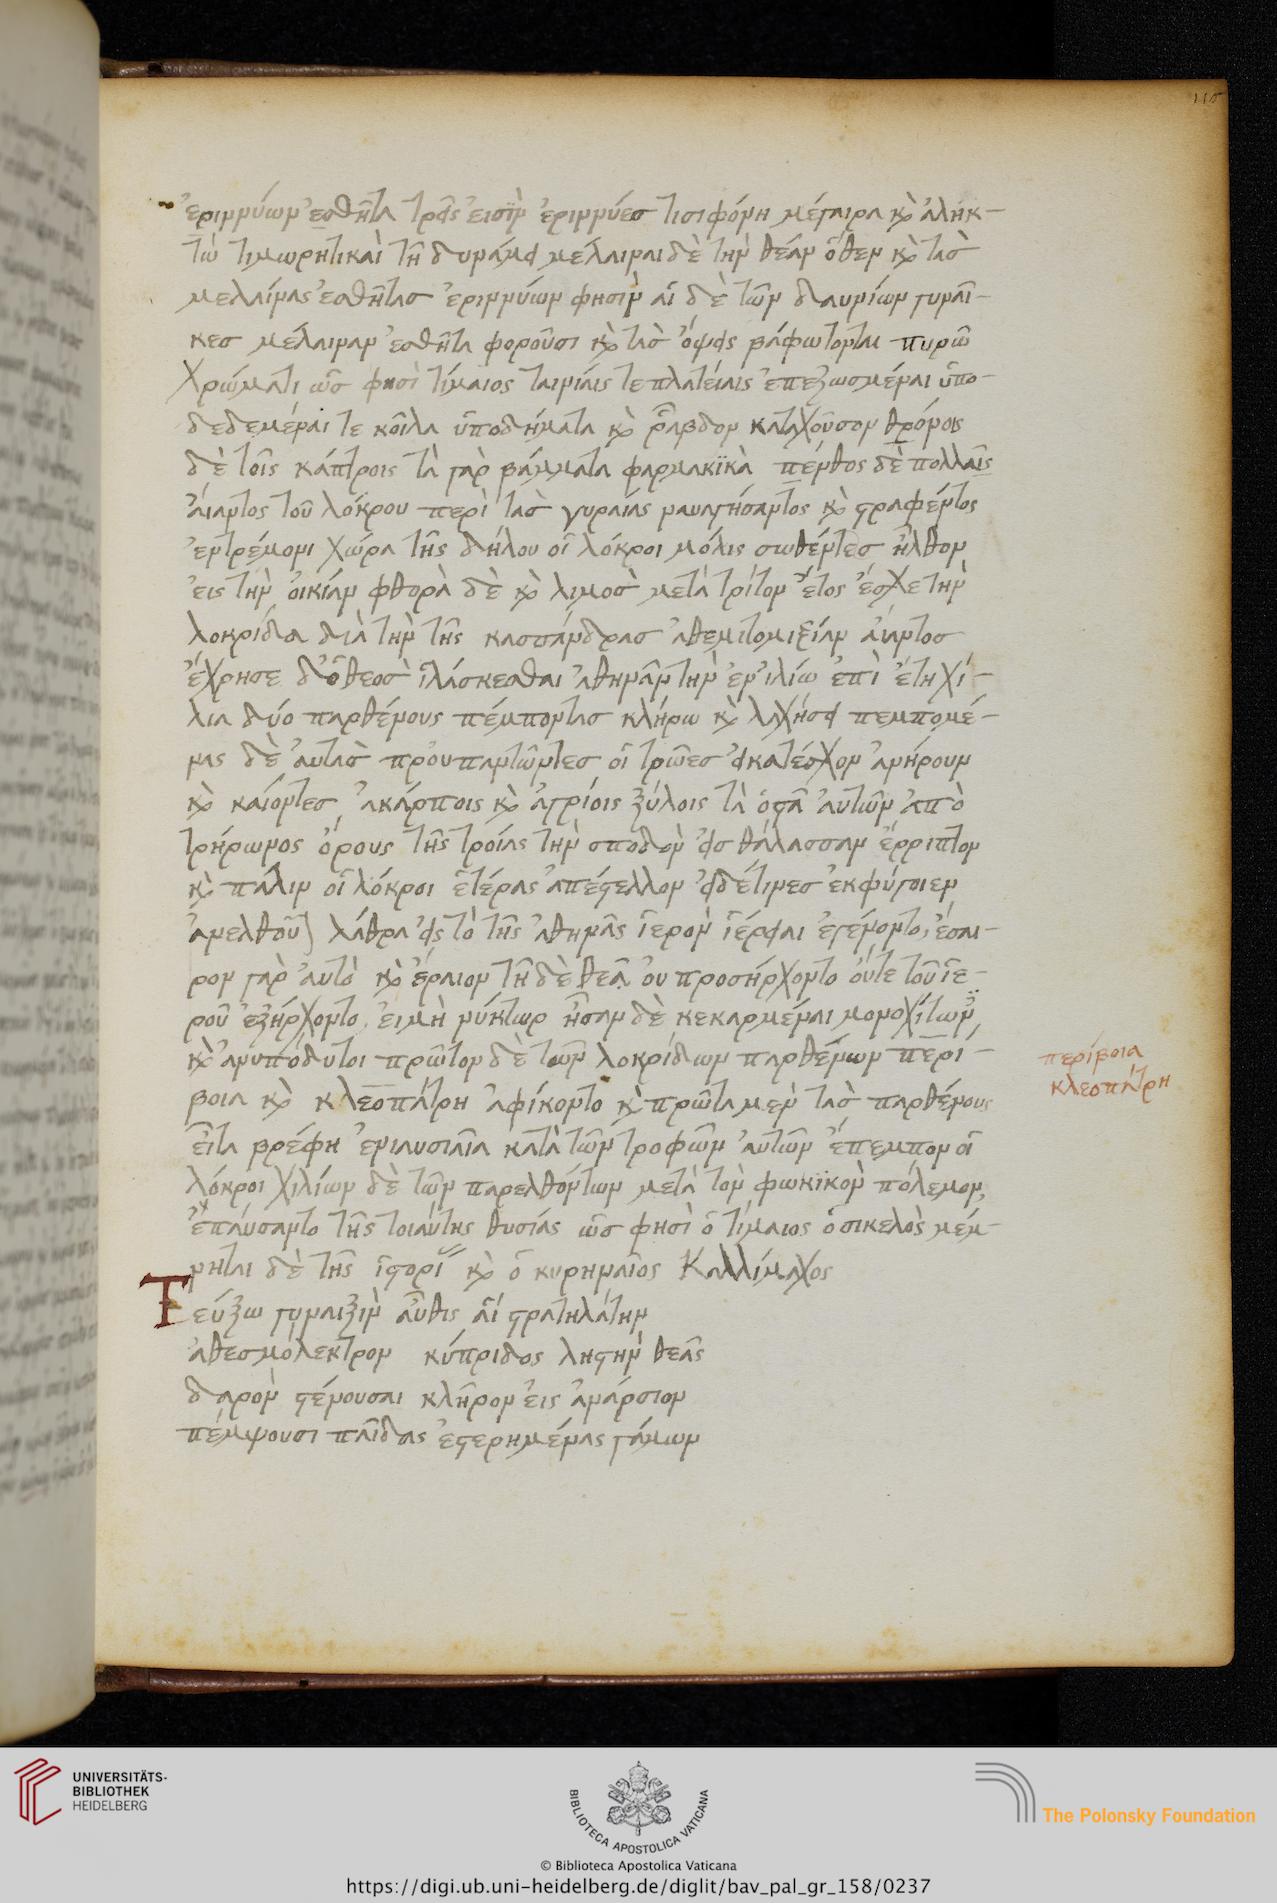 115
ἐριννύων ἐσθῆτα τρεῖς εἰσὶν ἐριννύες τισιφόνη μέγαιρα κὶ ἀληκ-
τὼ τιμωρητικαὶ τῆ δυνάμει μέλαιναι δὲ τὴν θέαν ὅθεν κὶ τὰσ
μελαίνας ἐσθῆτασ ἐριννύων φησὶν αἱ δὲ τῶν δαυνίων γυναῖ-
κεσ μέλαιναν ἐσθῆτα φοροῦσι κὶ τὰσ ὄψεις βάφωτονται πυρῶ
χρώματι ὥσ φησὶ τίμαιος ταινίαις τε πλατείαις ἐπεζωσμέναι ὑπο-
δεδεμέναι τε κοῖλα ὑποδήματα κὶ ῥαβδον καταχοῦσον θρόνοις
δὲ τοῖς κάπτροις τὰ γὰρ βάμματα φαρμακϊκὰ πένθος δὲ πολλαῖς
αἴαντος τοῦ λόκρου περὶ τὰσ γυραίας ναυαγήσαντος κὶ ϛραφέντος
ἐντρέμονι χώρα τῆς δήλου οἱ λόκροι μόλις σωθέντεσ ἦλθον
εἰς τὴν οἰκίαν φθορὰ δὲ κὶ λιμοσ μετὰ τρίτον ἔτος ἔσχε τὴν
λοκρίδα διὰ τὴν τῆς κασσάνδρασ ἀθεμιτομιξίαν αἴαντοσ
ἔχρησε δ'ὁ θεοσ ἱλάσκεσθαι ἀθηνᾶν τὴν ἐν ἰλίω ἐπὶ ἔτη χί-
λια δύο παρθένους πέμποντασ κλήρω κὶ λαχήσει πεμπομέ-
νας δὲ αὐτὰσ προὐπαντῶντεσ οἱ τρῶεσ εἰ κατέσχον ἀνήρουν
κὶ καίοντεσ ἀκάρποις κὶ ἀγρίοις ξύλοις τὰ ὀϛᾶ αὐτῶν ἀπὸ
τρήρωνος ὄρους τῆς τροίας τὴν σποδὸν εἰσ θάλασσαν ἔρριπτον
κὶ πάλιν οἱ λόκροι ἑτέρας ἀπέϛελλον εἰ δέ τινεσ ἐκφύγοιεν
ἀνελθοῦ) λάθρα εἰς τὸ τῆς ἀθηνᾶς ἱερὸν ἱέρειαι ἐγένοντο, ἔσαι-
ρον γὰρ αὐτὸ κὶ ἔραιον τῆ δὲ θεᾶ οὐ προσήρχοντο οὔτε τοῦ ἱε-
ροῦ ἐξήρχοντο, εἰ μὴ νύκτωρ ἦσαν δὲ κεκαρμέναι μονοχίτων
κὶ ἀνυπόδυτοι πρῶτον δὲ τῶν λοκρίδων παρθένων περί-
βοια κὶ κλεοπάτρη ἀφίκοντο κὶ πρῶτα μεν τὰσ παρθένους
εἶτα βρέφη ἐνιαυσιαῖα κατὰ τῶν τροφῶν αὐτῶν ἔπεμπον οἱ
λόκροι χιλίων δὲ τῶν παρελθόντων μετὰ τὸν φωκϊκὸν πόλεμον,
ἐπαύσαντο τῆς τοιαύτης θυσίας ὥσ φησὶ ὁ τίμαιος ὁ σικελὸς μέμ-
νηται δὲ τῆς ἱϛορί κὶ ὁ κυρηναῖος Καλλίμαχος
Τεύξω γυναιξὶν αὖθις αἵ ϛρατηλάτην
ἀθεσμόλεκτρον κύπριδος λῃϛὴν θεᾶς
δαρὸν ϛένουσαι κλῆρον εἰς ἀνάρσιον
πέμψουσι παῖδας ἐϛερημένας γάμων
περίβοια
κλεοπάτρη
UNIVERSITÄTS-
BIBLIOTHEK
HEIDELBERG
BIBLIOTECA APOSTOLICA VATICANA
The Polonsky Foundation
© Biblioteca Apostolica Vaticana
https://digi.ub.uni-heidelberg.de/diglit/bav_pal_gr_158/0237